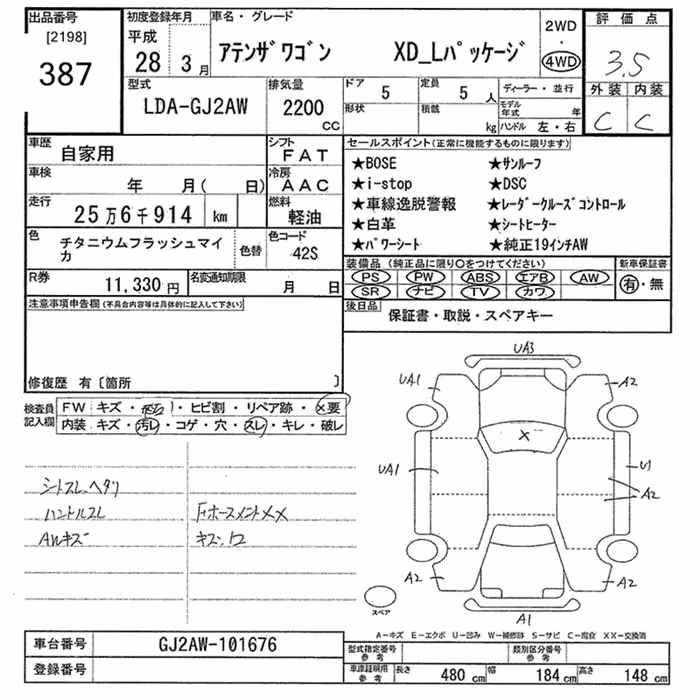 出品番号
[2198]
387
初度登録年月
平成
28 3月
車名・グレード
アテンザワゴン XD_Lパッケージ
2WD
・
4WD
評価点
3.5
外装 内装
C C
型式
LDA-GJ2AW
排気量
2200
CC
ドア 5
形状
定員 5 人
積載 kg
ディーラー・並行
モデル年式 年
ハンドル 左・右
車歴
自家用
シフト
FAT
車検
年 月( 日)
冷房
AAC
走行
25万6千914 km
燃料
軽油
色
チタニウムフラッシュマイカ
色替
色コード
42S
R券
11,330 円
名変通知期限
月 日
セールスポイント(正常に機能するものに限ります)
★BOSE ★サンルーフ
★i-stop ★DSC
★車線逸脱警報 ★レーダークルーズコントロール
★白革 ★シートヒーター
★パワーシート ★純正19インチAW
装備品(純正品に限り○をつけてください)
PS PW ABS エアB AW
SR ナビ TV カワ
新車保証書
有・無
後日品
保証書・取説・スペアキー
注意事項申告欄(不具合内容等は具体的に記入して下さい)
修復歴 有〔箇所 〕
検査員記入欄
FW キズ・ ・ヒビ割・リペア跡・×要
内装 キズ・汚レ・コゲ・穴・スレ・キレ・破レ
シートスレ、ヘタリ
ハンドルスレ
AWキズ
Fホースメント××
キズ、ワ
UA3
UA1
A2
X
UA1
U1
A2
A2
A2
A1
スペア
A-キズ E-エクボ U-凹み W-補修跡 S-サビ C-腐食 XX-交換済
車台番号 GJ2AW-101676
登録番号
型式指定番号参考
類別区分番号参考
車庫証明用参考
長さ 480 cm 幅 184 cm 高さ 148 cm